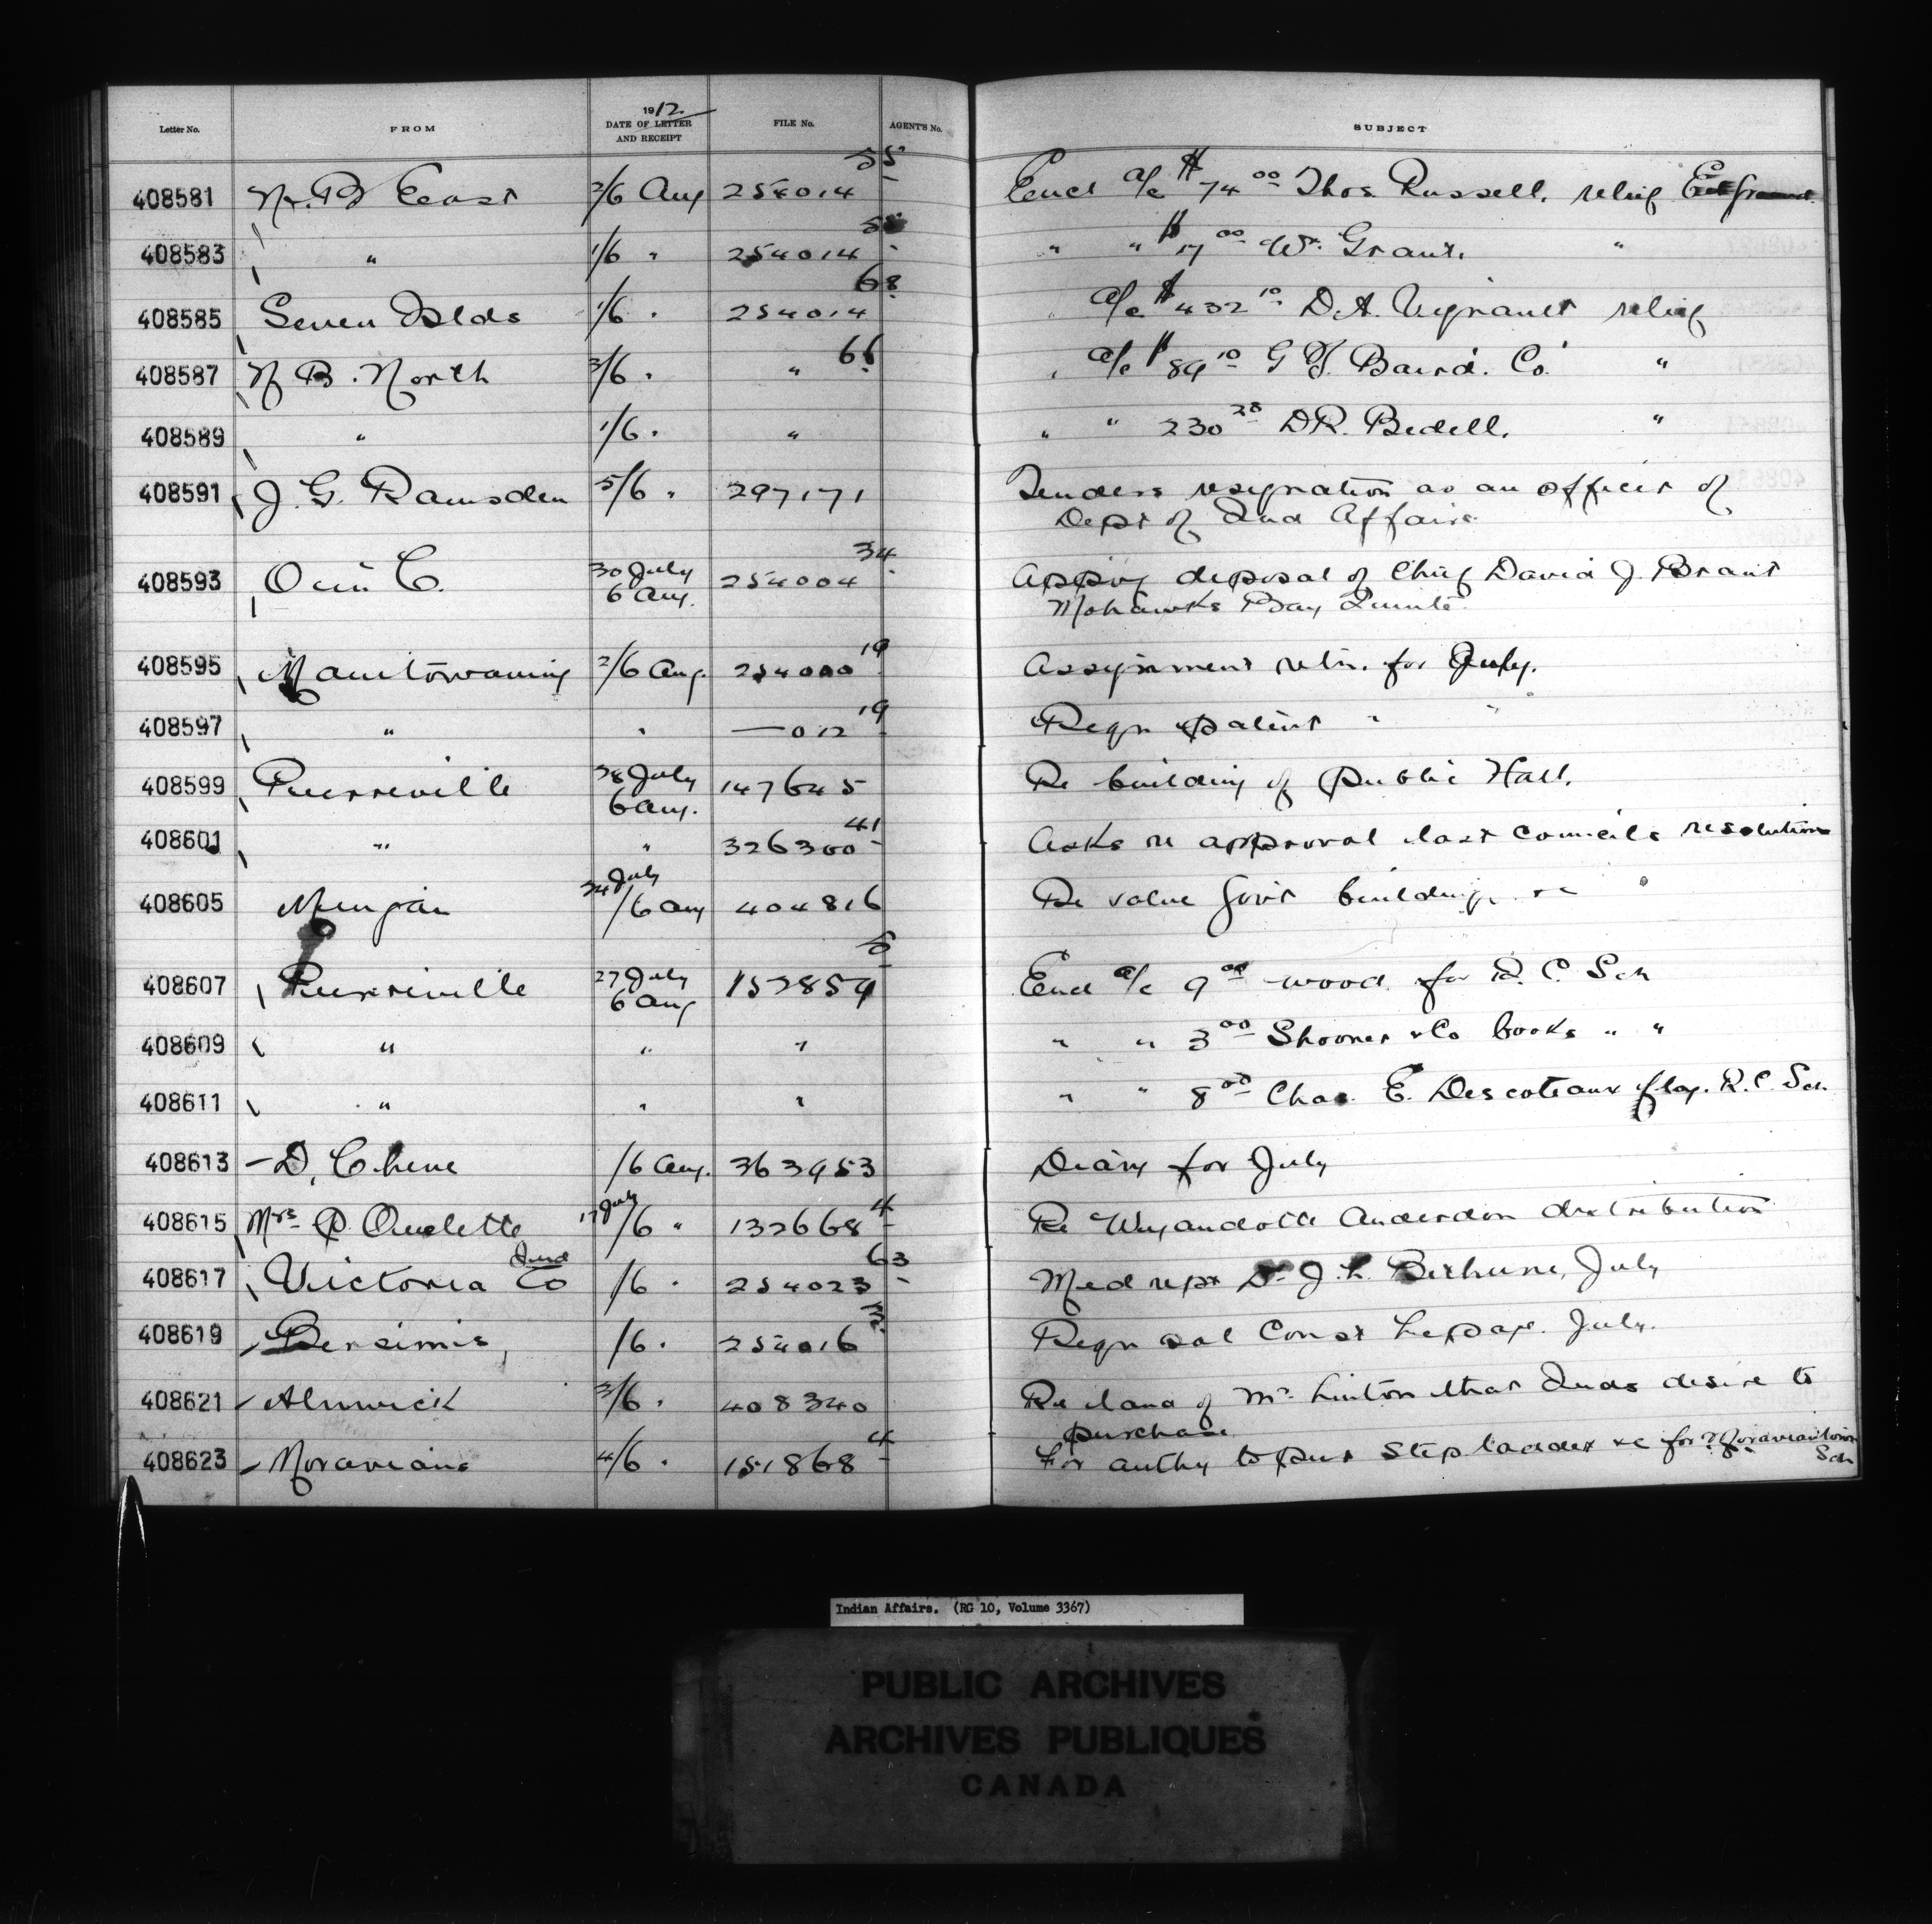 Letter No. FROM 1912 DATE OF LETTER AND RECEIPT FILE No. AGENT'S No. SUBJECT
408581 N. B East 2/6 Aug 254014 55 Encl a/c $74 00 Thos. Russell. relief
408583 " 1/6 " 254014 " " $17 00 Wm. Grant. "
408585 Seven Islds 1/6 " 254014 68 " a/c $432 10 D.A. Vignault relief
408587 N B. North 3/6 " " 66 " a/c $89 10 G T. Baird. Co. "
408589 " 1/6 " " " " 230 28 D R. Bedell. "
408591 J. G. Ramsden 5/6 " 297171 Tenders resignation as an officer of
Dept of Ind Affairs
408593 O in C. 30 July 6 Aug. 254004 34 Apprvg deposal of Chief David J. Brant
Mohawks Bay Quinte
408595 Manitowaning 2/6 Aug. 254000 19 Assignment retn. for July.
408597 " " —012 19 Regn patent " "
408599 Pierreville 28 July 6 Aug. 147645 Re building of Public Hall.
408601 " " 326300 41 Asks re approval last councils resolution
408605 Mingan 24 July /6 Aug 404816 Re value Govt buildings &c
408607 Pierreville 27 July 6 Aug 152859 Encl a/c 9 00 wood for R. C. Sch
408609 " " " " " 3 00 Shooner & Co books " "
408611 " " " " " 8 00 Chas. E. Descoteaux flag. R.C. Sch.
408613 D. Chene /6 Aug. 363953 Diary for July
408615 Mrs P. Ouelette 17 July /6 " 132668 4 Re Wyandotte Anderdon distribution
408617 Victoria Co Ind /6 " 254023 63 Med rept Dr J. L. Bethune, July
408619 Bersimis, /6 " 254016 Regn sal Const Lepage. July.
408621 Alnwick 3/6 " 408340 Re land of Mr. Linton that Inds desire to
purchase
408623 Moravians 4/6 " 151868 4 For authy to pur step ladder &c for Moraviantown
Sch
Indian Affairs. (RG 10, Volume 3367)
PUBLIC ARCHIVES
ARCHIVES PUBLIQUES
CANADA